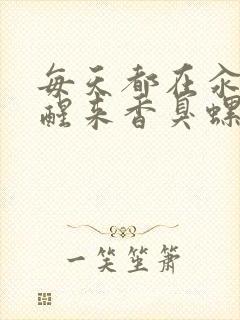 每天都在汆
醒来香臭螺
一笑笙箫